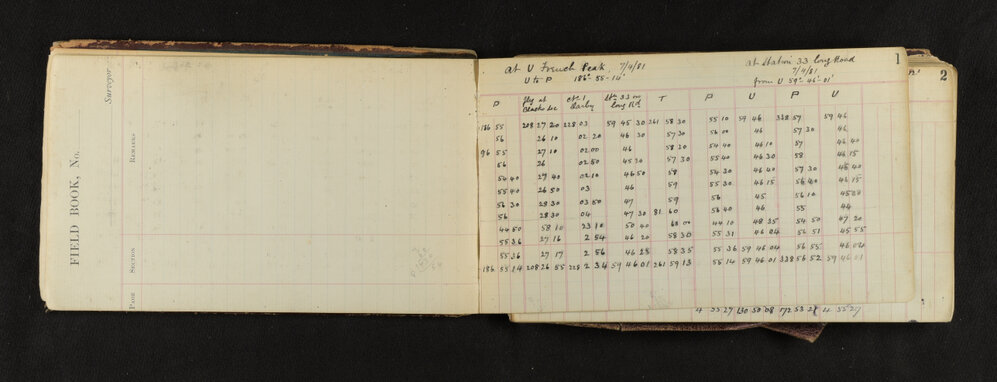 FIELD BOOK, No.
Surveyor
PAGE SECTION REMARKS
1
2
at U French Peak, 7/4/81
U to P 186°-55-14"
at Station 33 long Road
7/4/81
from U 59°-46-01'
P T P U P U
186 55 208 27 20 228 03 59 45 30 261 58 30 55 10 59 46 338 57 59 46
56 26 10 02 20 46 30 57 30 56 00 46 57 30 46
96 55 27 10 02 00 46 58 30 54 40 46 10 57 46 40
56 26 02 50 45 20 57 30 55 40 46 30 58 46 15
54 40 27 40 02 10 46 50 58 54 30 46 40 57 30 45 40
55 40 26 50 03 46 59 55 30 46 15 56 40 46 15
56 30 28 30 03 50 47 59 56 45 56 10 45 00
56 28 30 04 47 30 81 60 56 40 46 55 44
44 50 58 10 23 10 50 40 60 00 44 10 48 35 54 50 47 20
55 36 27 16 2 54 46 20 58 30 55 31 46 04 56 51 45 55
55 36 27 17 2 56 46 25 58 35 55 36 59 46 04 56 55 46 00
186 55 14 208 26 55 228 2 34 59 46 01 261 59 13 55 14 59 46 01 338 56 52 59 46 01
4 55 27 130 50 08 172 53 4 55 27